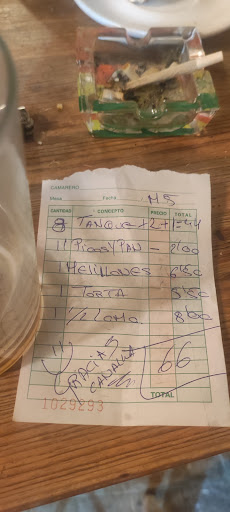 CAMARERO
Mesa Fecha M5
CANTIDAD CONCEPTO PRECIO TOTAL
TANQUE
11 PICOS/PAN - 200
1 MEJILLONES 650
1 TORTA 550
1 1/2 LOMO. 800
GRACIAS CANALLA 66
TOTAL
1029293